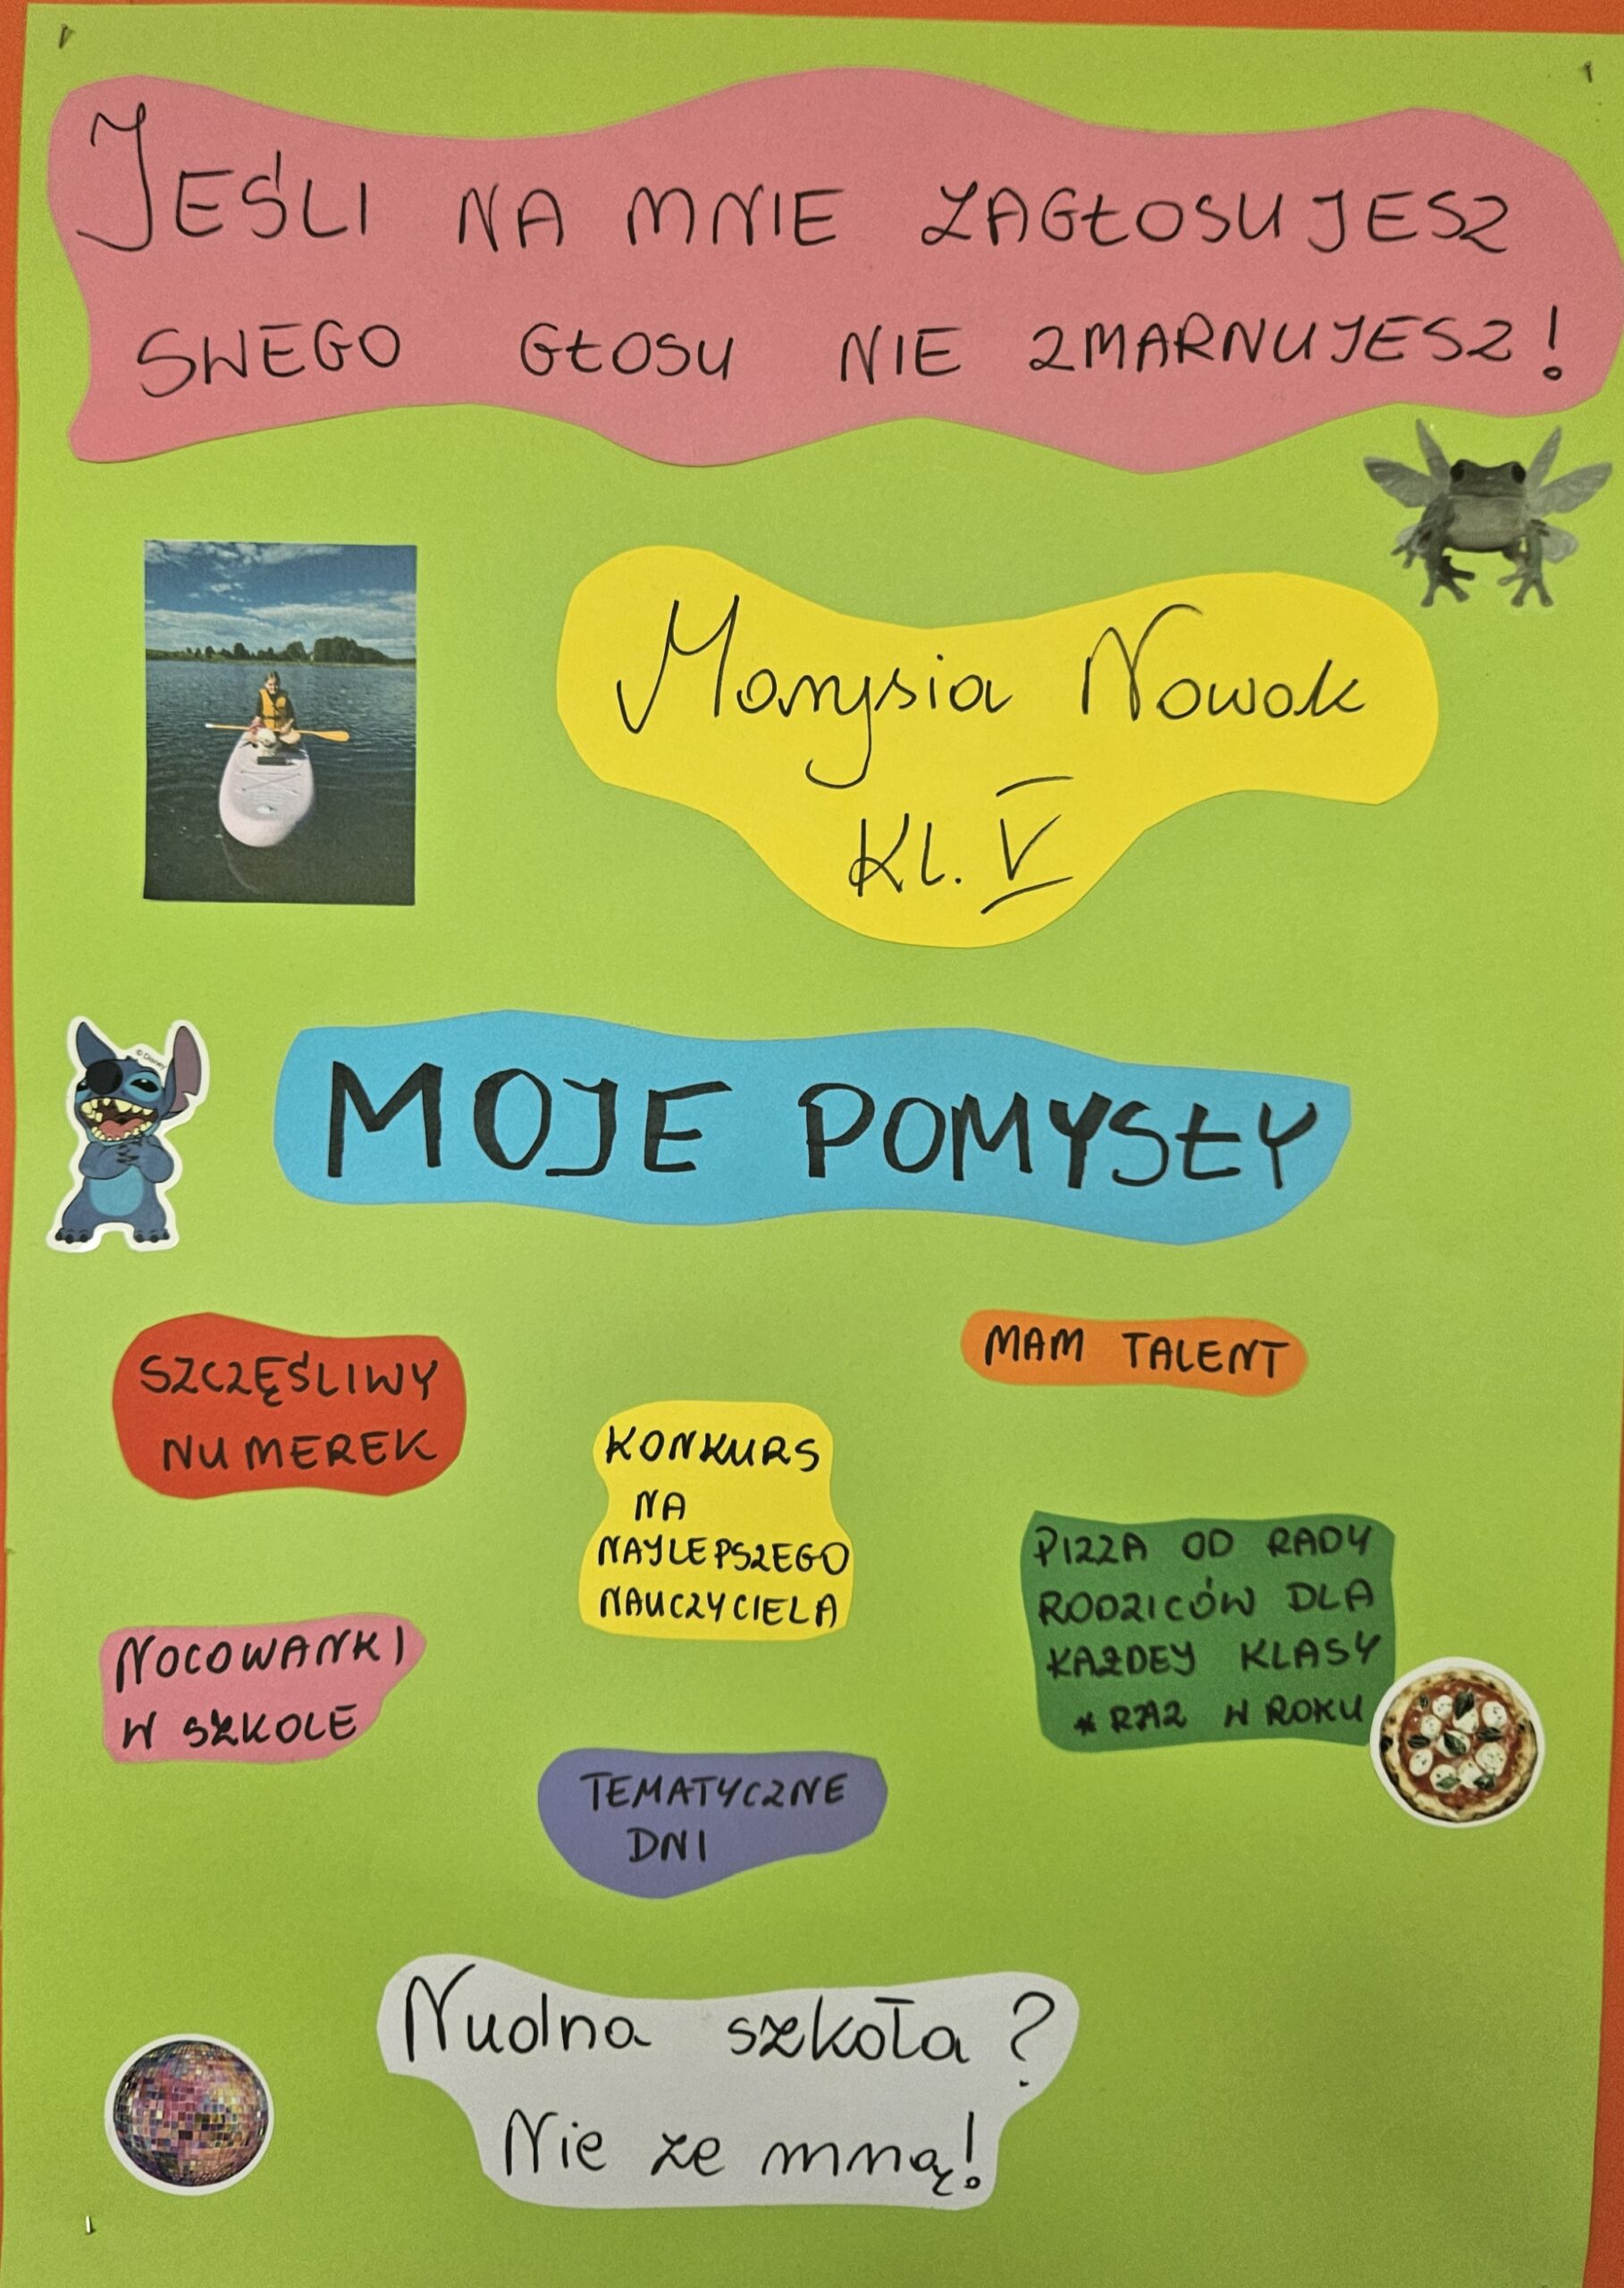 JEŚLI NA MNIE ZAGŁOSUJESZ
SWEGO GŁOSU NIE ZMARNUJESZ!
Marysia Nowak
Kl. V
© Disney
MOJE POMYSŁY
SZCZĘŚLIWY
NUMEREK
MAM TALENT
KONKURS
NA
NAJLEPSZEGO
NAUCZYCIELA
PIZZA OD RADY
RODZICÓW DLA
KAŻDEJ KLASY
* RAZ W ROKU
NOCOWANKI
W SZKOLE
TEMATYCZNE
DNI
Nudna szkoła?
Nie ze mną!